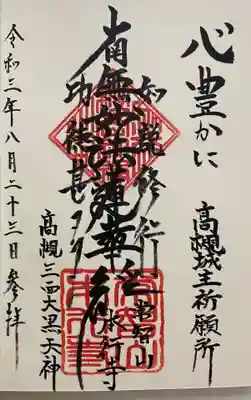 心豊かに
高槻城主祈願所
如説修行
常智山
本行寺
南無妙法蓮華経
功徳甚多
高槻三面大黒天神
令和三年八月二十三日参拝